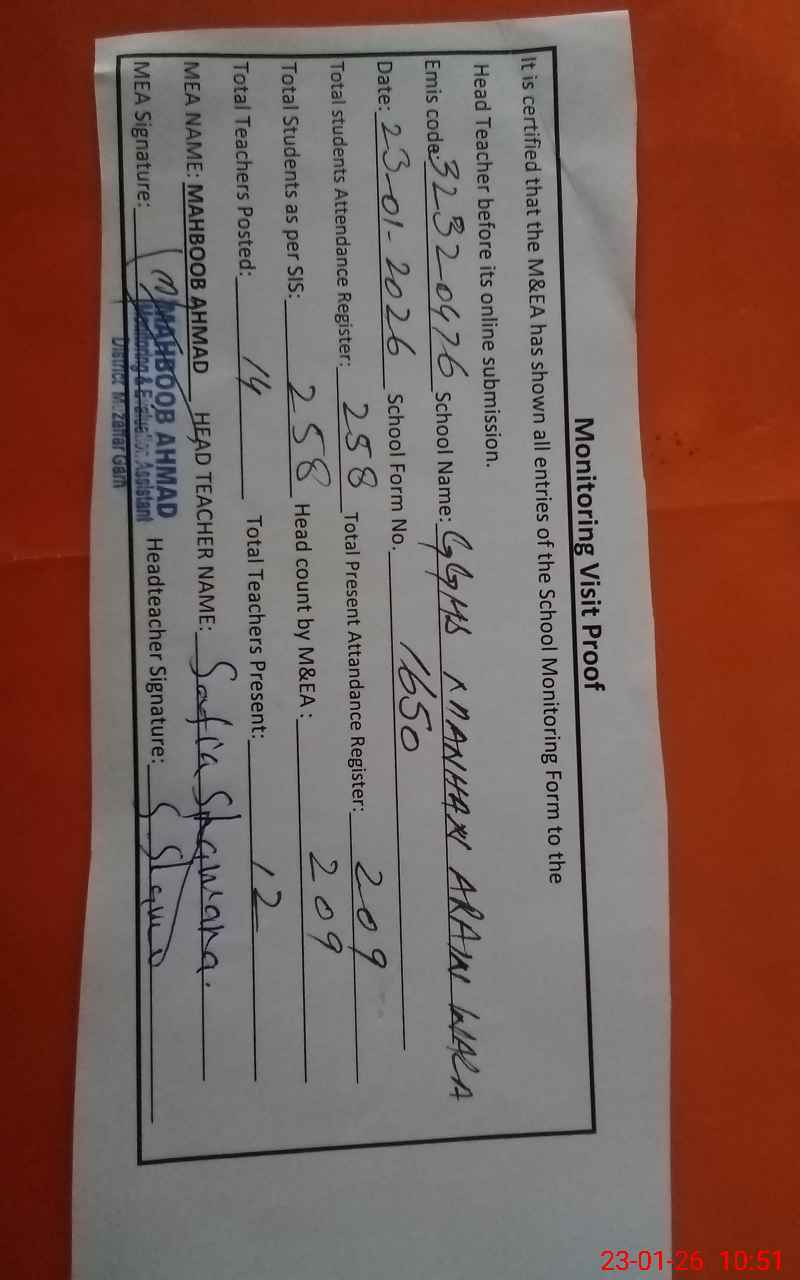 Monitoring Visit Proof
It is certified that the M&EA has shown all entries of the School Monitoring Form to the
Head Teacher before its online submission.
Emis code: 32320476 School Name: GGHS KHANHAN ARAIN WALA
Date: 23-01-2026 School Form No. 1650
Total students Attendance Register: 258 Total Present Attandance Register: 209
Total Students as per SIS: 258 Head count by M&EA: 209
Total Teachers Posted: 14 Total Teachers Present: 12
MEA NAME: MAHBOOB AHMAD HEAD TEACHER NAME: Safia Shawana.
MEA Signature: Headteacher Signature:
MAHBOOB AHMAD
Monitoring & Evaluation Assistant
District Muzaffar Garh
23-01-26 10:51